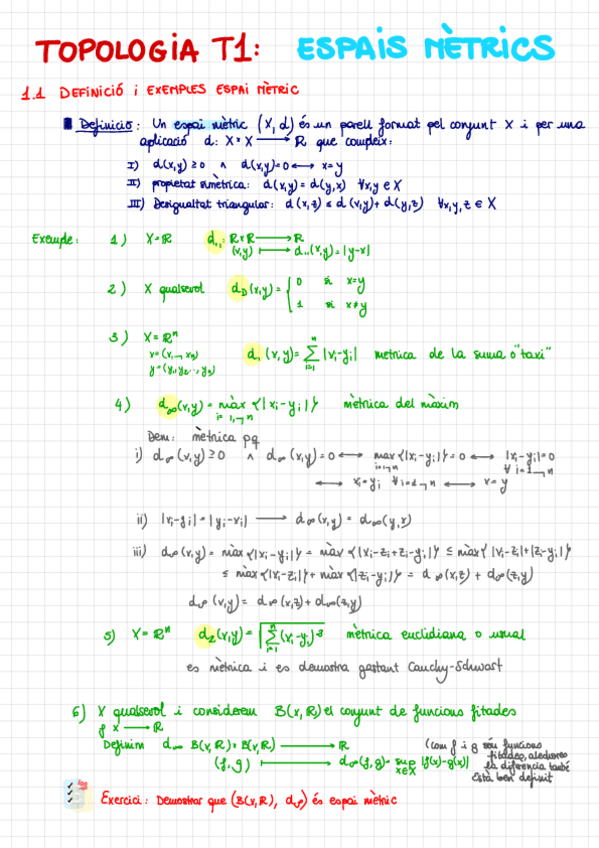 TOPOLOGIA T1: ESPAIS MÈTRICS
1.1 DEFINICIÓ i EXEMPLES ESPAI MÈTRIC
Definició: Un espai mètric (X, d) és un parell format pel conjunt X i per una
aplicació d: X × X ⟶ ℝ que compleix:
I) d(x,y) ≥ 0 ∧ d(x,y)=0 ⟷ x=y
II) propietat simètrica: d(x,y) = d(y,x) ∀x,y ∈ X
III) Desigualtat triangular: d(x,z) ≤ d(x,y) + d(y,z) ∀x,y,z ∈ X
Exemple: 1) X=ℝ d₁.₁: ℝ×ℝ ⟶ ℝ
(x,y) ⟼ d₁.₁(x,y) = |y-x|
2) X qualsevol d_D(x,y) = { 0 si x=y
1 si x≠y
3) X=ℝⁿ
x=(x₁,...,xₙ) d₁(x,y) = ∑ⁿᵢ₌₁ |xᵢ-yᵢ| mètrica de la suma o "taxi"
y=(y₁,y₂...,yₙ)
4) d∞(x,y) = màx {|xᵢ-yᵢ|} mètrica del màxim
i=1,...,n
Dem: mètrica pq
i) d∞(x,y) ≥ 0 ∧ d∞(x,y) = 0 ⟷ max {|xᵢ-yᵢ|} = 0 ⟷ |xᵢ-yᵢ|=0
i=1,...,n ∀i=1,...,n
⟷ xᵢ=yᵢ ∀i=1,...,n ⟷ x=y
ii) |xᵢ-yᵢ| = |yᵢ-xᵢ| ⟶ d∞(x,y) = d∞(y,x)
iii) d∞(x,y) = màx {|xᵢ-yᵢ|} = màx {|xᵢ-zᵢ+zᵢ-yᵢ|} ≤ màx {|xᵢ-zᵢ|+|zᵢ-yᵢ|}
≤ màx {|xᵢ-zᵢ|} + màx {|zᵢ-yᵢ|} = d∞(x,z) + d∞(z,y)
d∞(x,y) = d∞(x,z) + d∞(z,y)
5) X=ℝⁿ d₂(x,y) = √∑ⁿᵢ₌₁ (xᵢ-yᵢ)² mètrica euclidiana o usual
es mètrica i es demostra gastant Cauchy-Schwart
6) X qualsevol i considerem B(X,ℝ) el conjunt de funcions fitades
f x ⟶ ℝ
Definim d∞ B(X,ℝ)×B(X,ℝ) ⟶ ℝ
(f,g) ⟼ d∞(f,g) = sup |f(x)-g(x)|
x∈X
(com f i g són funcions
fitades, aleshores
la diferència també
Està ben definit
Exercici: Demostrar que (B(X,ℝ), d∞) és espai mètric